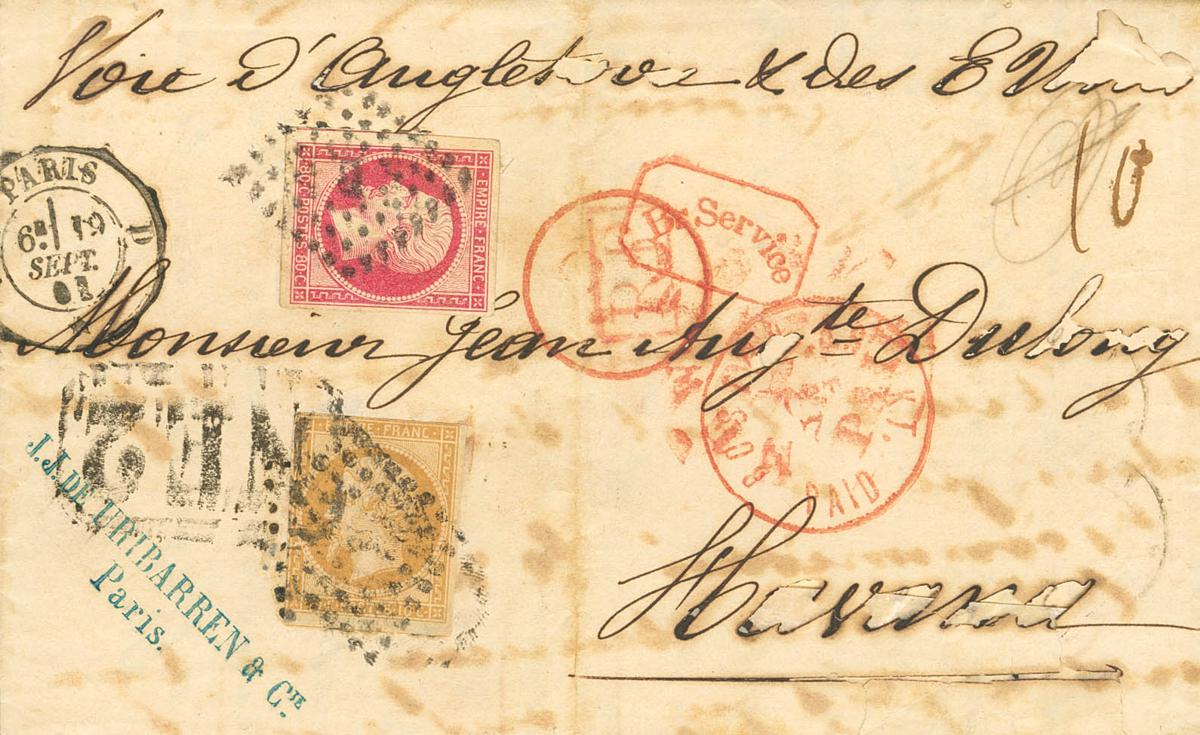 Voie d'Angleterre & des E Unis
PARIS
D
6E 19
SEPT.
61
80·C·POSTES·80·C
EMPIRE·FRANC
Br Service
10
Monsieur Jean Augte Dulong
EMPIRE FRANC
PAID
J. J. DE URIBARREN & CIE
Paris.
Havana